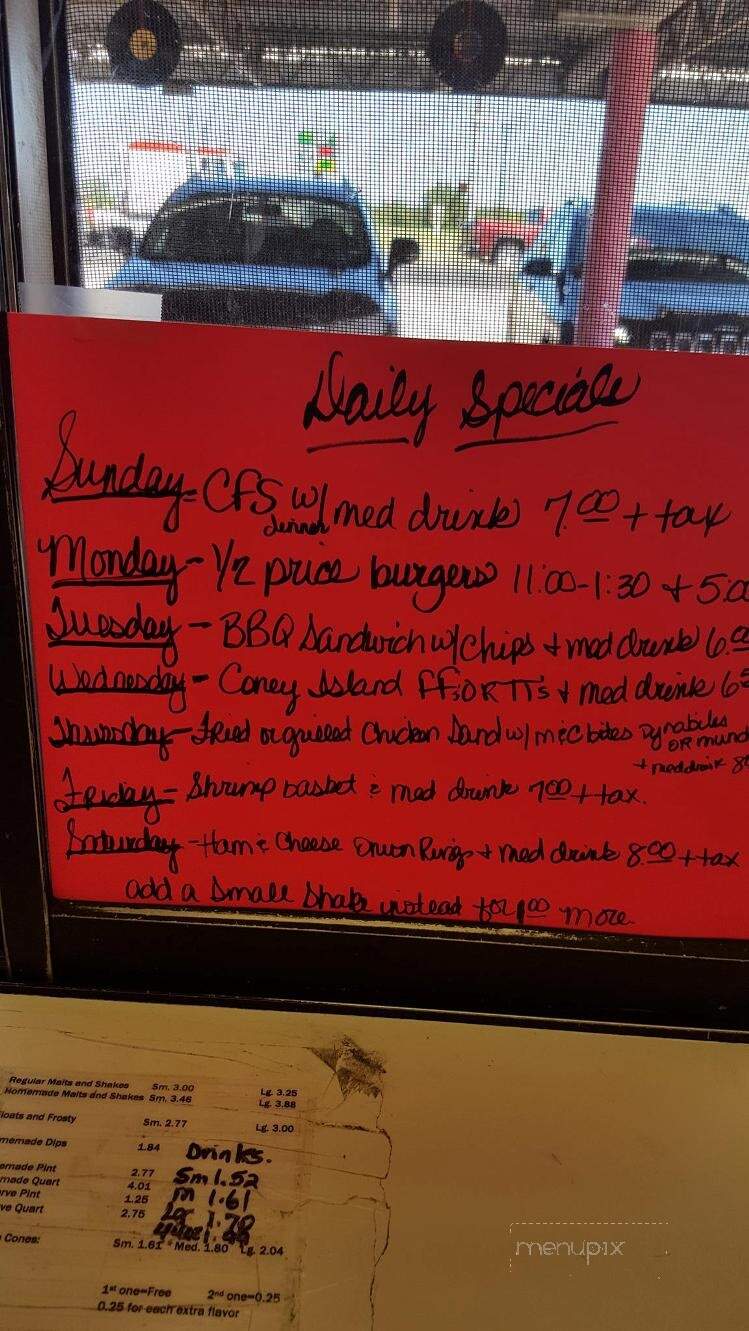 Daily Specials
Sunday = CFS w/ med drink 7.00 + tax
dinner
Monday - 1/2 price burgers 11:00-1:30 + 5:00
Tuesday - BBQ Sandwich w/ chips + med drink 6.
Wednesday - Coney Island FF's OR TT's + med drink 6
Thursday - Fried or grilled Chicken Sand w/ m&c bites
OR
+ med drink 8
Friday = Shrimp basket & med drink 7.00 + tax.
Saturday - Ham & Cheese Onion Rings + med drink 8.00 + tax
add a Small Shake instead for 1.00 more.
Regular Malts and Shakes Sm. 3.00 Lg. 3.25
Homemade Malts and Shakes Sm. 3.46 Lg. 3.88
loats and Frosty Sm. 2.77 Lg. 3.00
memade Dips 1.84 Drinks.
emade Pint 2.77 Sm 1.52
made Quart 4.01 M 1.61
rve Pint 1.25 Lar 1.78
ve Quart 2.75
Cones: Sm. 1.61 Med. 1.80 Lg. 2.04
1st one=Free 2nd one=0.25
0.25 for each extra flavor
menupix